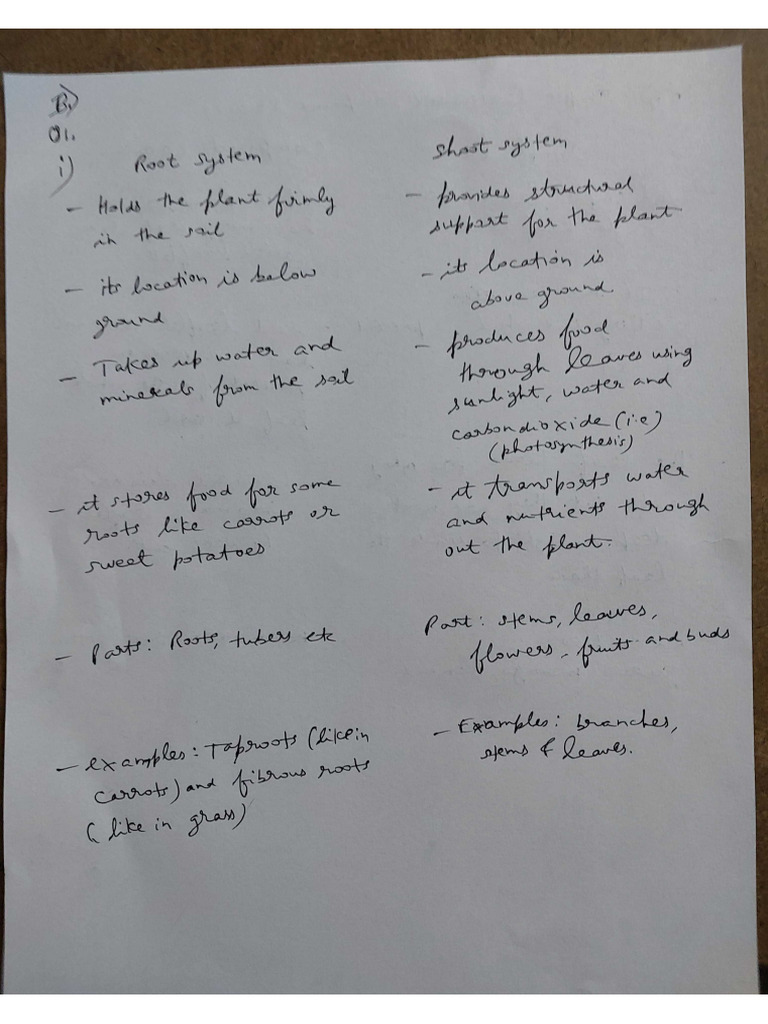 B)
01.
i)
Root system
- Holds the plant firmly
in the soil
- its location is below
ground
- Takes up water and
minerals from the soil
- it stores food for some
roots like carrots or
sweet potatoes
- Parts: Roots, tubers etc
- examples: Taproots (like in
carrots) and fibrous roots
(like in grass)
Shoot system
- provides structural
support for the plant
- its location is
above ground.
- produces food
through leaves using
sunlight, water and
carbondioxide (i.e)
(photosynthesis)
- it transports water
and nutrients through
out the plant.
Part: stems, leaves,
flowers, fruits and buds
- Examples: branches,
stems & leaves.